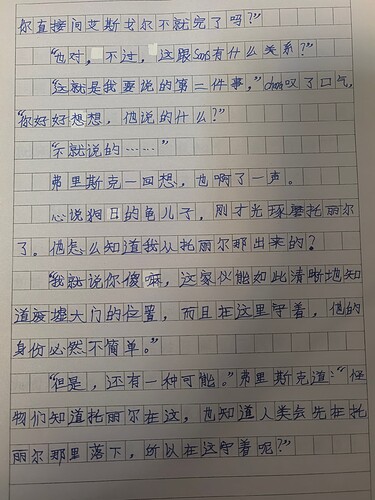 你直接问艾斯戈尔不就完了吗?”
“也对, 不过, 这跟Sans有什么关系?”
“这就是我要说的第二件事,”chara叹了口气,
“你好好想想, 他说的什么?”
“不就说的……”
弗里斯克一回想, 也啊了一声。
心说狗日的龟儿子, 刚才光琢磨托丽尔
了。他怎么知道我从托丽尔那出来的?
“我就说你傻嘛, 这家伙能如此清晰地知
道废墟大门的位置, 而且在这里守着, 他的
身份必然不简单。”
“但是, 还有一种可能。”弗里斯克道:“怪
我们知道托丽尔在这, 也知道人类会先在托
丽尔那里落下, 所以在这守着呢?”